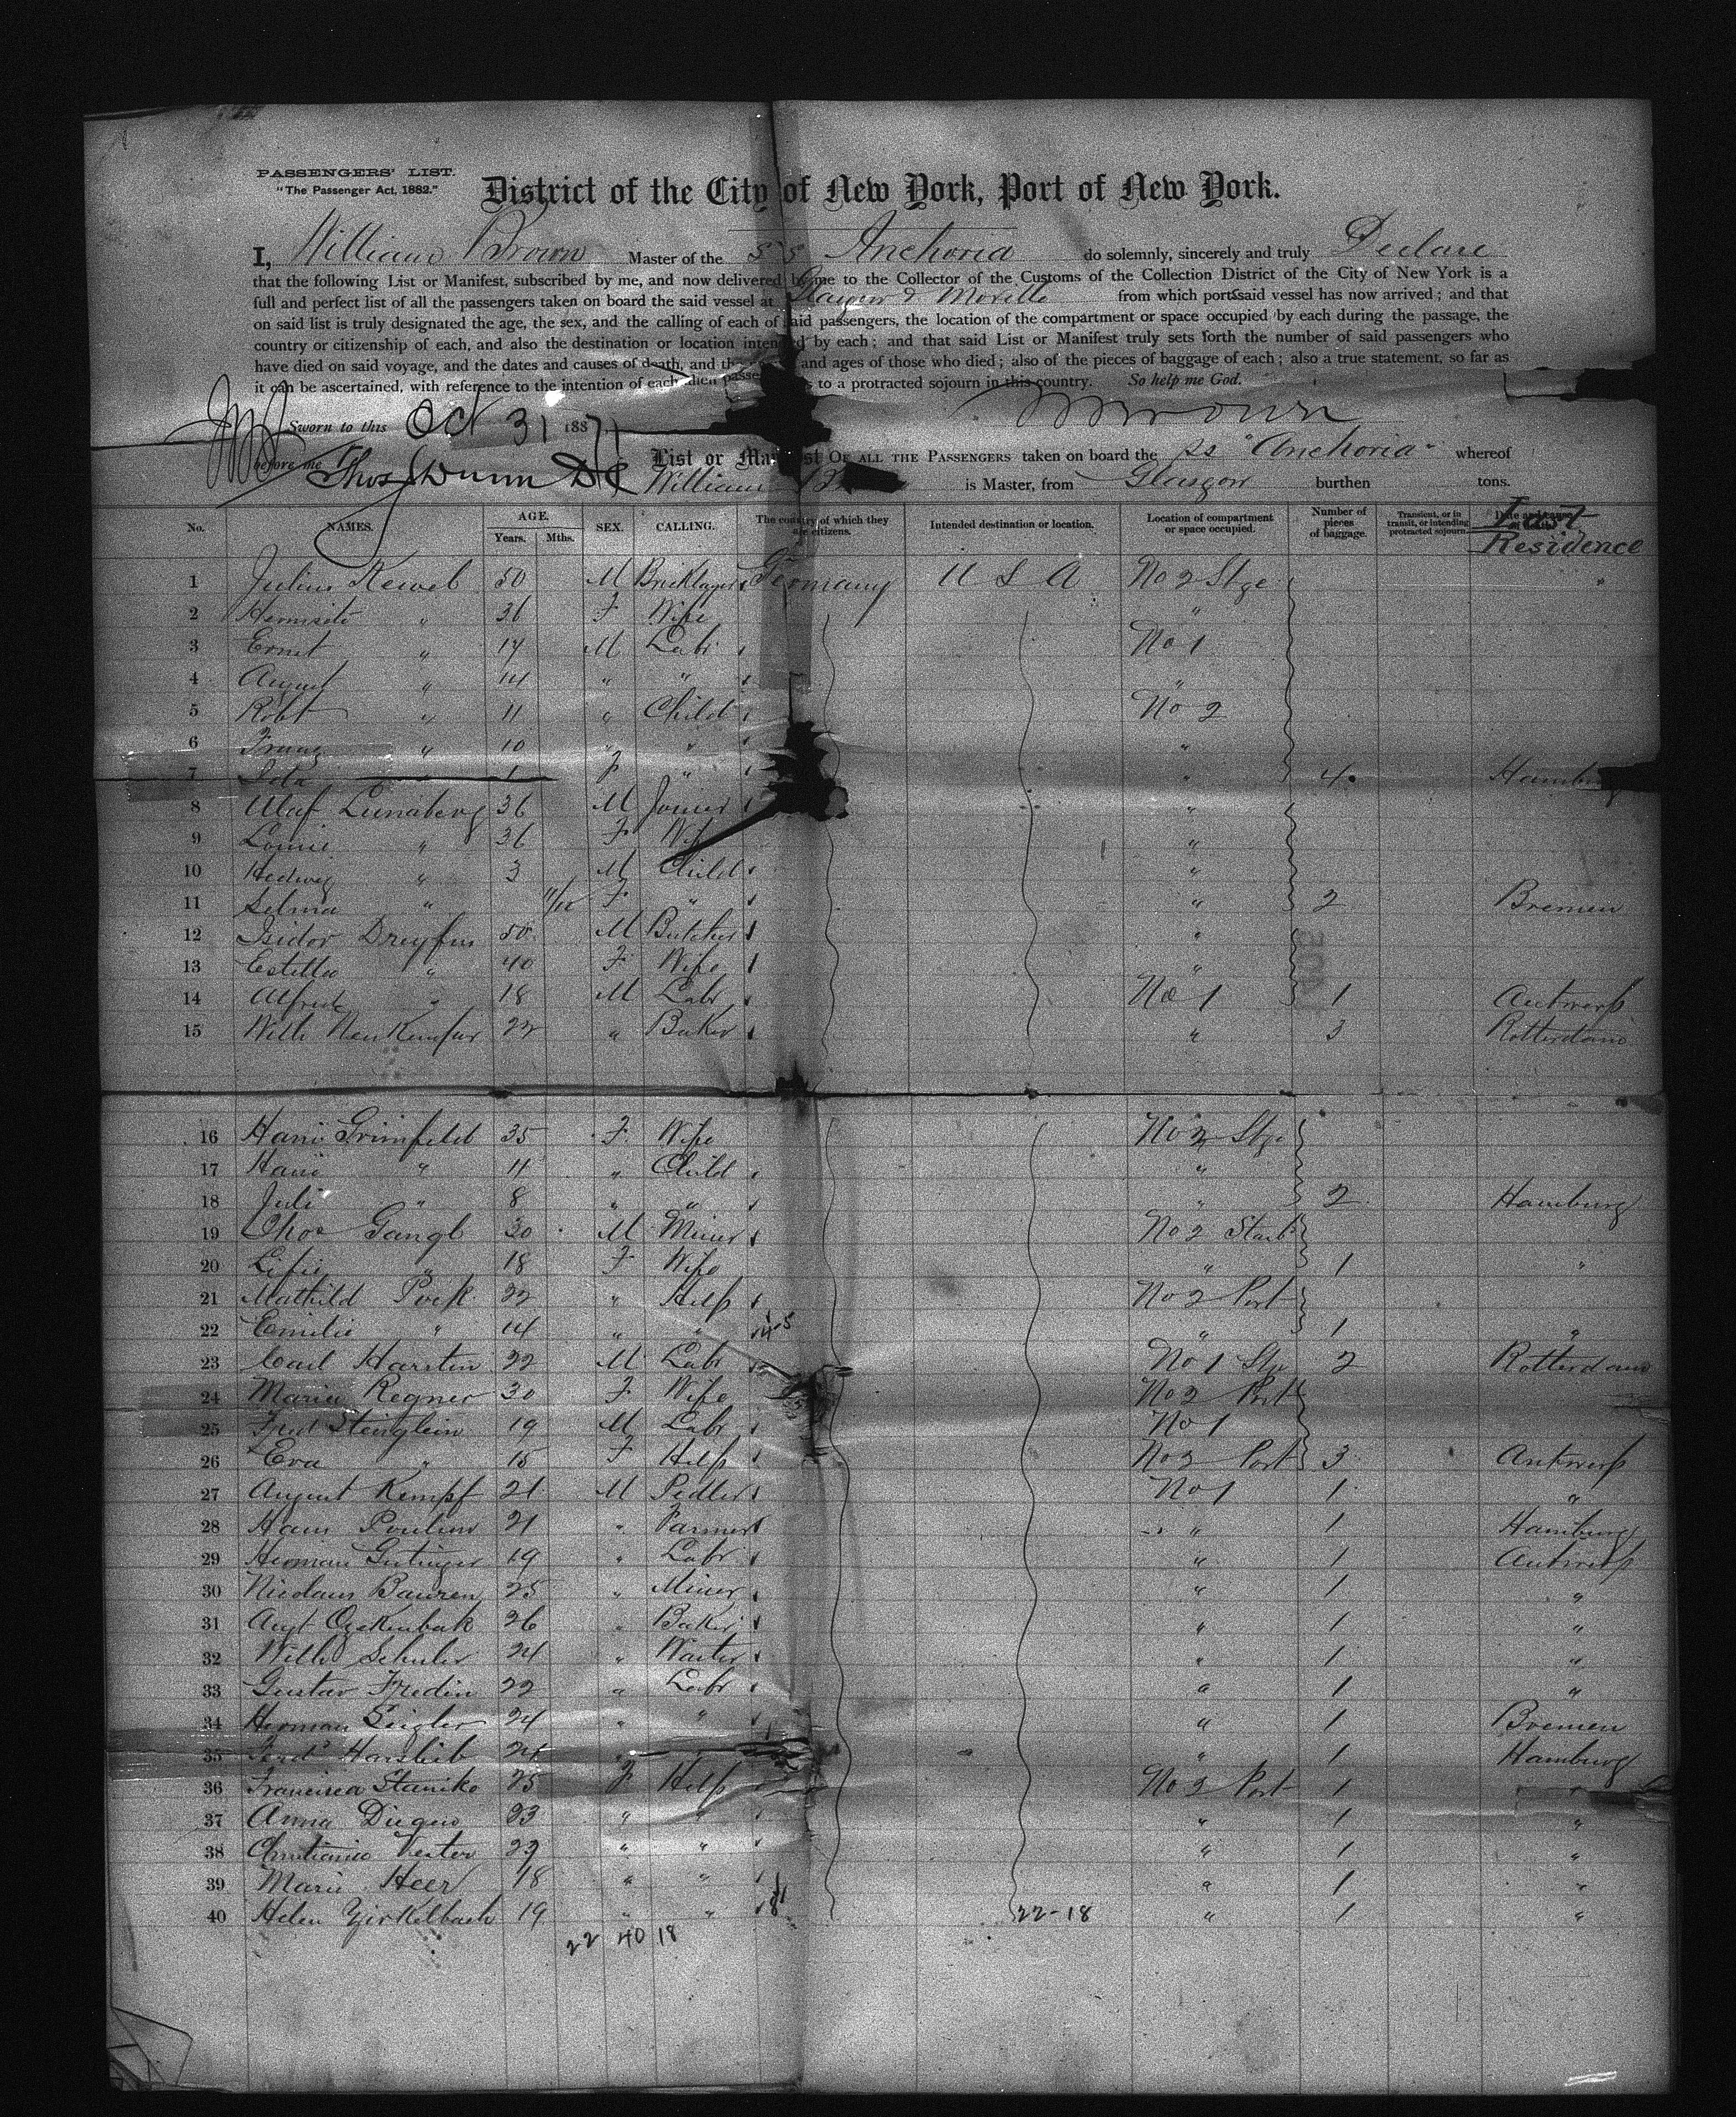 PASSENGERS' LIST.
"The Passenger Act, 1882."
District of the City of New York, Port of New York.
I, William Brown Master of the SS Anchoria do solemnly, sincerely and truly Declare
that the following List or Manifest, subscribed by me, and now delivered by me to the Collector of the Customs of the Collection District of the City of New York is a
full and perfect list of all the passengers taken on board the said vessel at & Moville from which ports said vessel has now arrived; and that
on said list is truly designated the age, the sex, and the calling of each of said passengers, the location of the compartment or space occupied by each during the passage, the
country or citizenship of each, and also the destination or location intended by each; and that said List or Manifest truly sets forth the number of said passengers who
have died on said voyage, and the dates and causes of death, and the and ages of those who died; also of the pieces of baggage of each; also a true statement, so far as
it can be ascertained, with reference to the intention of each to a protracted sojourn in this country. So help me God.
Sworn to this Oct 31 1887 WBrown
before me Thos Dunn DC
List or Manifest OF ALL THE PASSENGERS taken on board the ss "Anchoria" whereof
William B is Master, from Glasgow burthen tons.
No. NAMES. AGE. Years. Mths. SEX. CALLING. The country of which they are citizens. Intended destination or location. Location of compartment or space occupied. Number of pieces of baggage. Transient, or in transit, or intending protracted sojourn. Date and cause of death. Last Residence
1 Julius 50 M Bricklayer Germany U S A No 2 Stge "
2 " 36 F Wife "
3 Ernst " 17 M Labr No 1
4 August " 14 " " "
5 Robt " 11 " Child No 2
6 Franz " 10 " " "
7 Ida " 1 F " " 4 Hamburg
8 Olaf 36 M Joiner "
9 " 36 F Wife "
10 Hedwig " 3 M Child "
11 Selma " 11/12 F " " 2 Bremen
12 Isidor Dreyfus 50 M Butcher "
13 Estella " 40 F Wife "
14 Alfred " 18 M Labr No 1 1 Antwerp
15 Wilh 22 " Baker " 3 Rotterdam
16 Hani Grimfeld 35 F Wife No 2 Stge
17 Hani " 11 " Child "
18 Juli " 8 " " " 2 Hamburg
19 Chos Gangl 30 M Miner No 2 Starb
20 " 18 F Wife " 1 "
21 Mathild 22 " Help No 2 Port
22 Emilie " 14 " " " 1 "
23 Carl Harsten 22 M Labr No 1 Stg 2 Rotterdam
24 Maria Regner 30 F Wife No 2 Port
25 Ferd Steinglein 19 M Labr No 1
26 Eva " 15 F Help No 2 Port 3 Antwerp
27 August Kempf 21 M Pedler No 1 1 "
28 Hans Poulsen 21 " Farmer " 1 Hamburg
29 Herman 19 " Labr " 1 Antwerp
30 Nicolaus Bauren 25 " Miner " 1 "
31 Augt 26 " Baker " 1 "
32 Wilh Schuler 24 " Waiter " 1 "
33 Gustav Fredin 22 " Labr " 1 "
34 Herman Seigler 24 " " " 1 Bremen
35 Ferd 24 " " 1 Hamburg
36 Francisca Staniko 25 F Help No 2 Port 1 "
37 Anna 23 " " " 1 "
38 Christiane Vester 22 " " " 1 "
39 Marie Heer 18 " " " 1 "
40 Helen Zirkelbach 19 " " 22-18 " 1 "
22 40 18